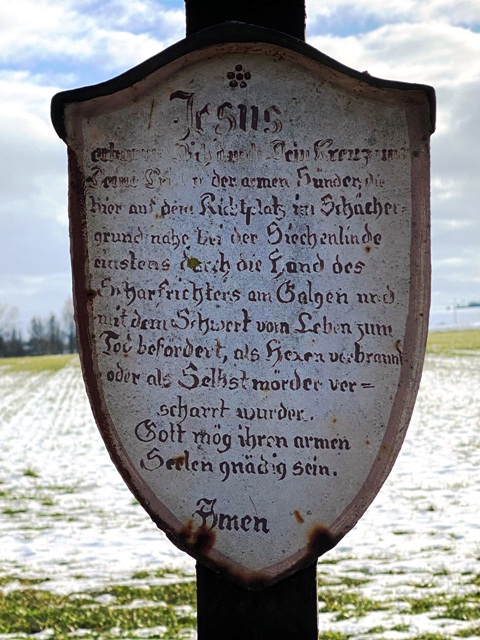 Jesus
erbarme Dich durch Dein Kreuz und
Deine der armen Sünder, die
hier auf dem Richtplatz im Schächer-
grund nahe bei der Siechenlinde
einstens durch die Hand des
Scharfrichters am Galgen und
mit dem Schwert vom Leben zum
Tod befördert, als Hexen verbrannt
oder als Selbstmörder ver=
scharrt wurden.
Gott mög ihren armen
Seelen gnädig sein.
Amen